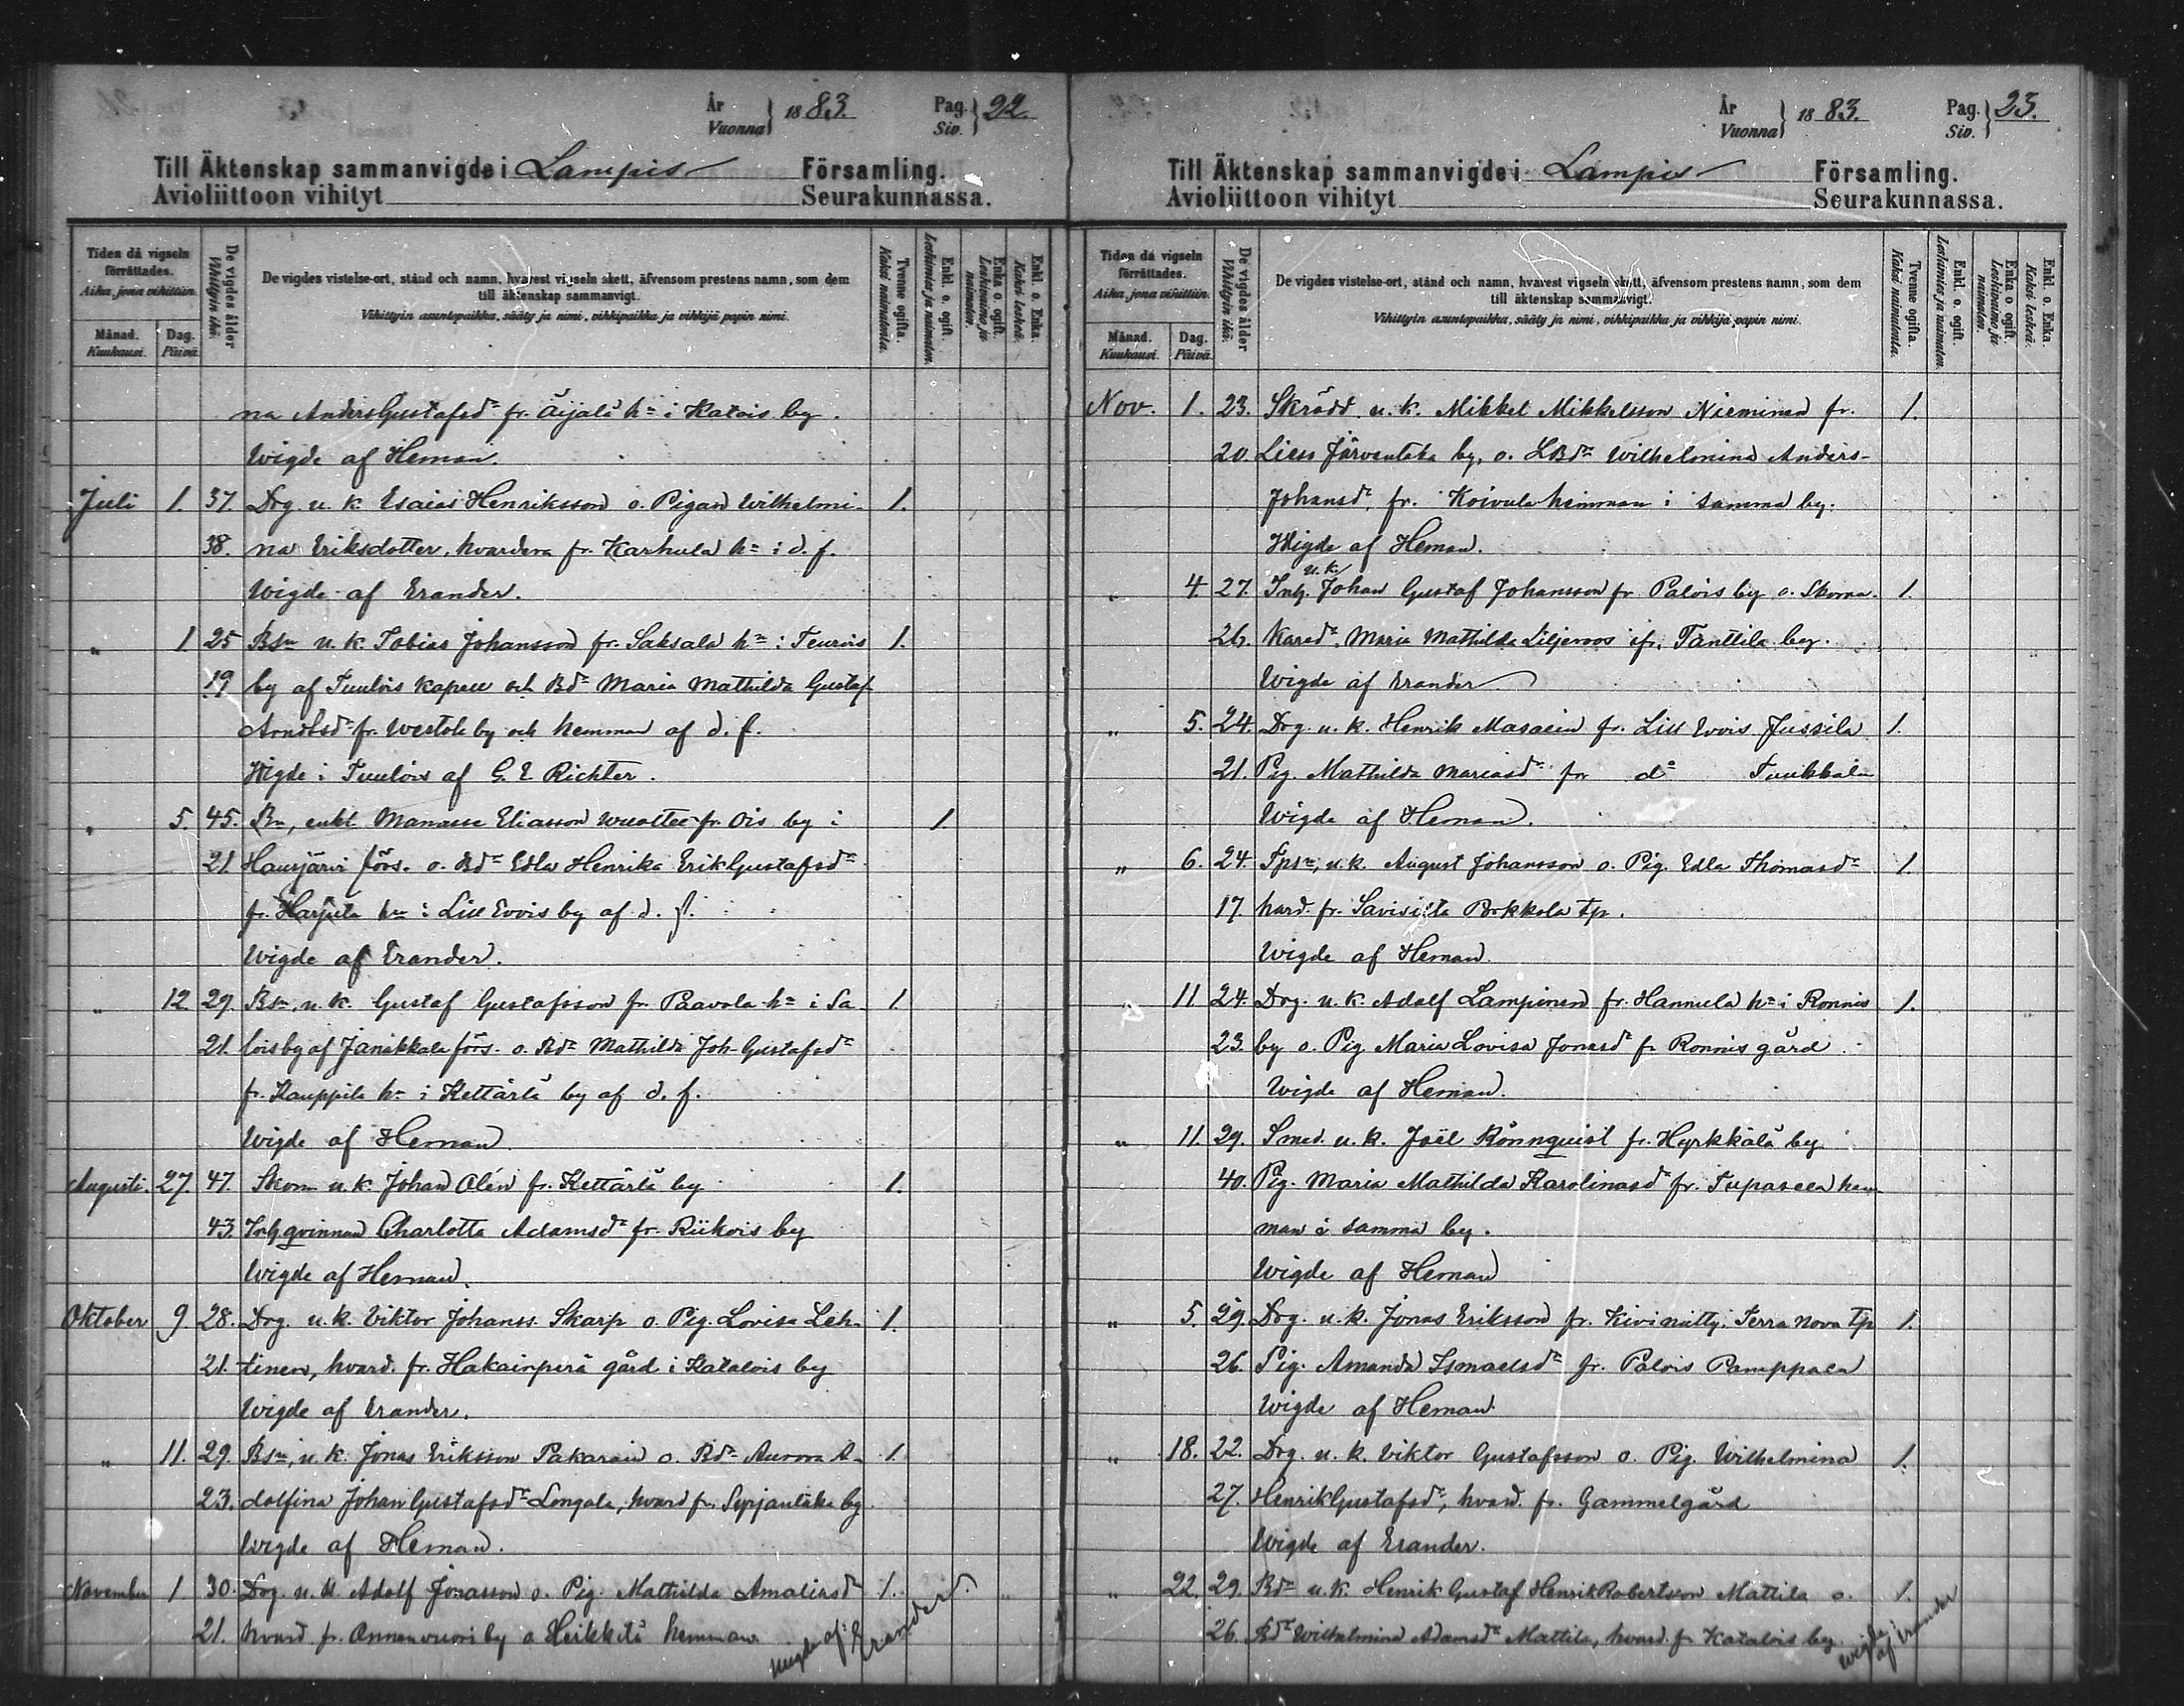 År
Vuonna } 1883.
Pag.
Siv. } 22.
Till Äktenskap sammanvigde i Lampis Församling.
Avioliittoon vihityt Seurakunnassa.
Tiden då vigseln förrättades.
Aika, jona vihittiin.
Månad.
Kuukausi.
Dag.
Päivä.
De vigdes ålder
Vihittyin ikä.
De vigdes vistelse-ort, stånd och namn, hvarest vigseln skett, äfvensom prestens namn, som dem
till äktenskap sammanvigt.
Vihittyin asuntopaikka, sääty ja nimi, vihkipaikka ja vihkijä papin nimi.
Tvenne ogifta.
Kaksi naimatonta.
Enkl. o. ogift.
Leskimies ja naimaton.
Enka o. ogift.
Leskivaimo ja naimaton.
Enkl. o. Enka.
Kaksi leskeä.
na Anders Gustafsdr fr. Äijälä hn i Katois by.
Wigde af Heman.
Juli 1. 37. Drg. u. k. Esaias Henriksson o. Pigan Wilhelmi- 1.
38. na Eriksdotter, hvardera fr. Karhula hn i d. f.
Wigde af Erander.
" 1 25 Bsn u. k. Tobias Johansson fr. Saksala hn i Teuris 1.
19 by af Tuulois kapell och Bdr Maria Mathilda Gustaf
fr. Westola by och hemman af d. f.
Wigde i Tuulois af G. E. Richter.
" 5. 45. Bn, enkl. Manasse Eliasson fr. Ois by i 1.
21. Hausjärvi förs. o. Bdr Edla Henrika Erik Gustafsdr
fr. Harjula hn i Lill Evois by af d. f.
Wigde af Erander.
" 12. 29. Bsn, u. k. Gustaf Gustafsson fr. Paavola hn i Sa- 1.
21. lois by af Janakkala förs. o. Bdr Mathilda Joh. Gustafsdr
fr. Kauppila hn i Kettärlä by af d. f.
Wigde af Heman
Augusti. 27. 47. Skom u. k. Johan Alén fr. Kettärlä by 1.
43. Inh. qvinnan Charlotta Adamsdr fr. Riikois by
Wigde af Heman.
Oktober 9. 28. Drg. u. k. Viktor Johanss. Skarp o. Pig. Lovisa Leh- 1.
21. tinen, hvard. fr. Hakainperä gård i Katalois by
Wigde af Erander.
" 11. 29. Bsn, u. k. Jonas Eriksson Pakarain o. Bdr Aurora A- 1.
23. dolfina Johan Gustafsdr Longala, hvard fr. Syrjäntaka by.
Wigde af Heman.
November 1. 30. Drg. u. k. Adolf Jonasson o. Pig. Mathilda Amaliasdr 1.
21. hvard fr. by o Heikkilä hemman. Wigde af Erander.
År
Vuonna } 1883.
Pag.
Siv. } 23.
Till Äktenskap sammanvigde i Lampis Församling.
Avioliittoon vihityt Seurakunnassa.
Tiden då vigseln förrättades.
Aika, jona vihittiin.
Månad.
Kuukausi.
Dag.
Päivä.
De vigdes ålder
Vihittyin ikä.
De vigdes vistelse-ort, stånd och namn, hvarest vigseln skett, äfvensom prestens namn, som dem
till äktenskap sammanvigt.
Vihittyin asuntopaikka, sääty ja nimi, vihkipaikka ja vihkijä papin nimi.
Tvenne ogifta.
Kaksi naimatonta.
Enkl. o. ogift.
Leskimies ja naimaton.
Enka o. ogift.
Leskivaimo ja naimaton.
Enkl. o. Enka.
Kaksi leskeä.
Nov. 1. 23. Skrädd. u. k. Mikkel Mikkelsson Nieminen fr. 1.
20. Lieso Järventaka by, o. LBdr Wilhelmina Anders-
Johansdr, fr. Koivula hemman i samma by.
Wigde af Heman.
" 4. 27. Inh. u. k. Johan Gustaf Johansson fr. Palois by o. Skoma- 1.
26. karedr. Maria Mathilda Liljeroos fr. Tanttila by.
Wigde af Erander
" 5. 24. Drg. u. k. Henrik Masalin fr. Lill Evois Jussila 1.
21. Pig. Mathilda Mariasdr fr do Tuukkala
Wigde af Heman.
" 6. 24. Tpsn, u. k. August Johansson o. Pig. Edla Thomasdr 1.
17. hvard. fr. Savisilta Pokkola tp.
Wigde af Heman.
" 11 24. Drg. u. k. Adolf Lampinen fr. Hannula hn i Ronnis 1.
23. by o. Pig Maria Lovisa Jonasdr fr. Ronnis gård.
Wigde af Heman.
" 11. 29. Smed. u. k. Joël Rönnquist fr. Hyrkkälä by
40. Pig. Maria Mathilda Karolinasdr fr. Tupasela hem-
man i samma by.
Wigde af Heman
" 5. 29. Drg. u. k. Jonas Eriksson fr. Kiviniitty. Terra Nova tp 1.
26. Pig. Amanda Ismaelsdr fr. Palois Pamppala
Wigde af Heman.
" 18. 22. Drg. u. k. Viktor Gustafsson o. Pig. Wilhelmina 1.
27. Henrik Gustafsdr, hvard. fr. Gammelgård
Wigde af Erander.
" 22. 29. Bdr u. k. Henrik Gustaf Henrik Robertsson Mattila o. 1.
26. Bdr Wilhelmina Adamsdr Mattila, hvard. fr Katalois by. Wigde af Erander